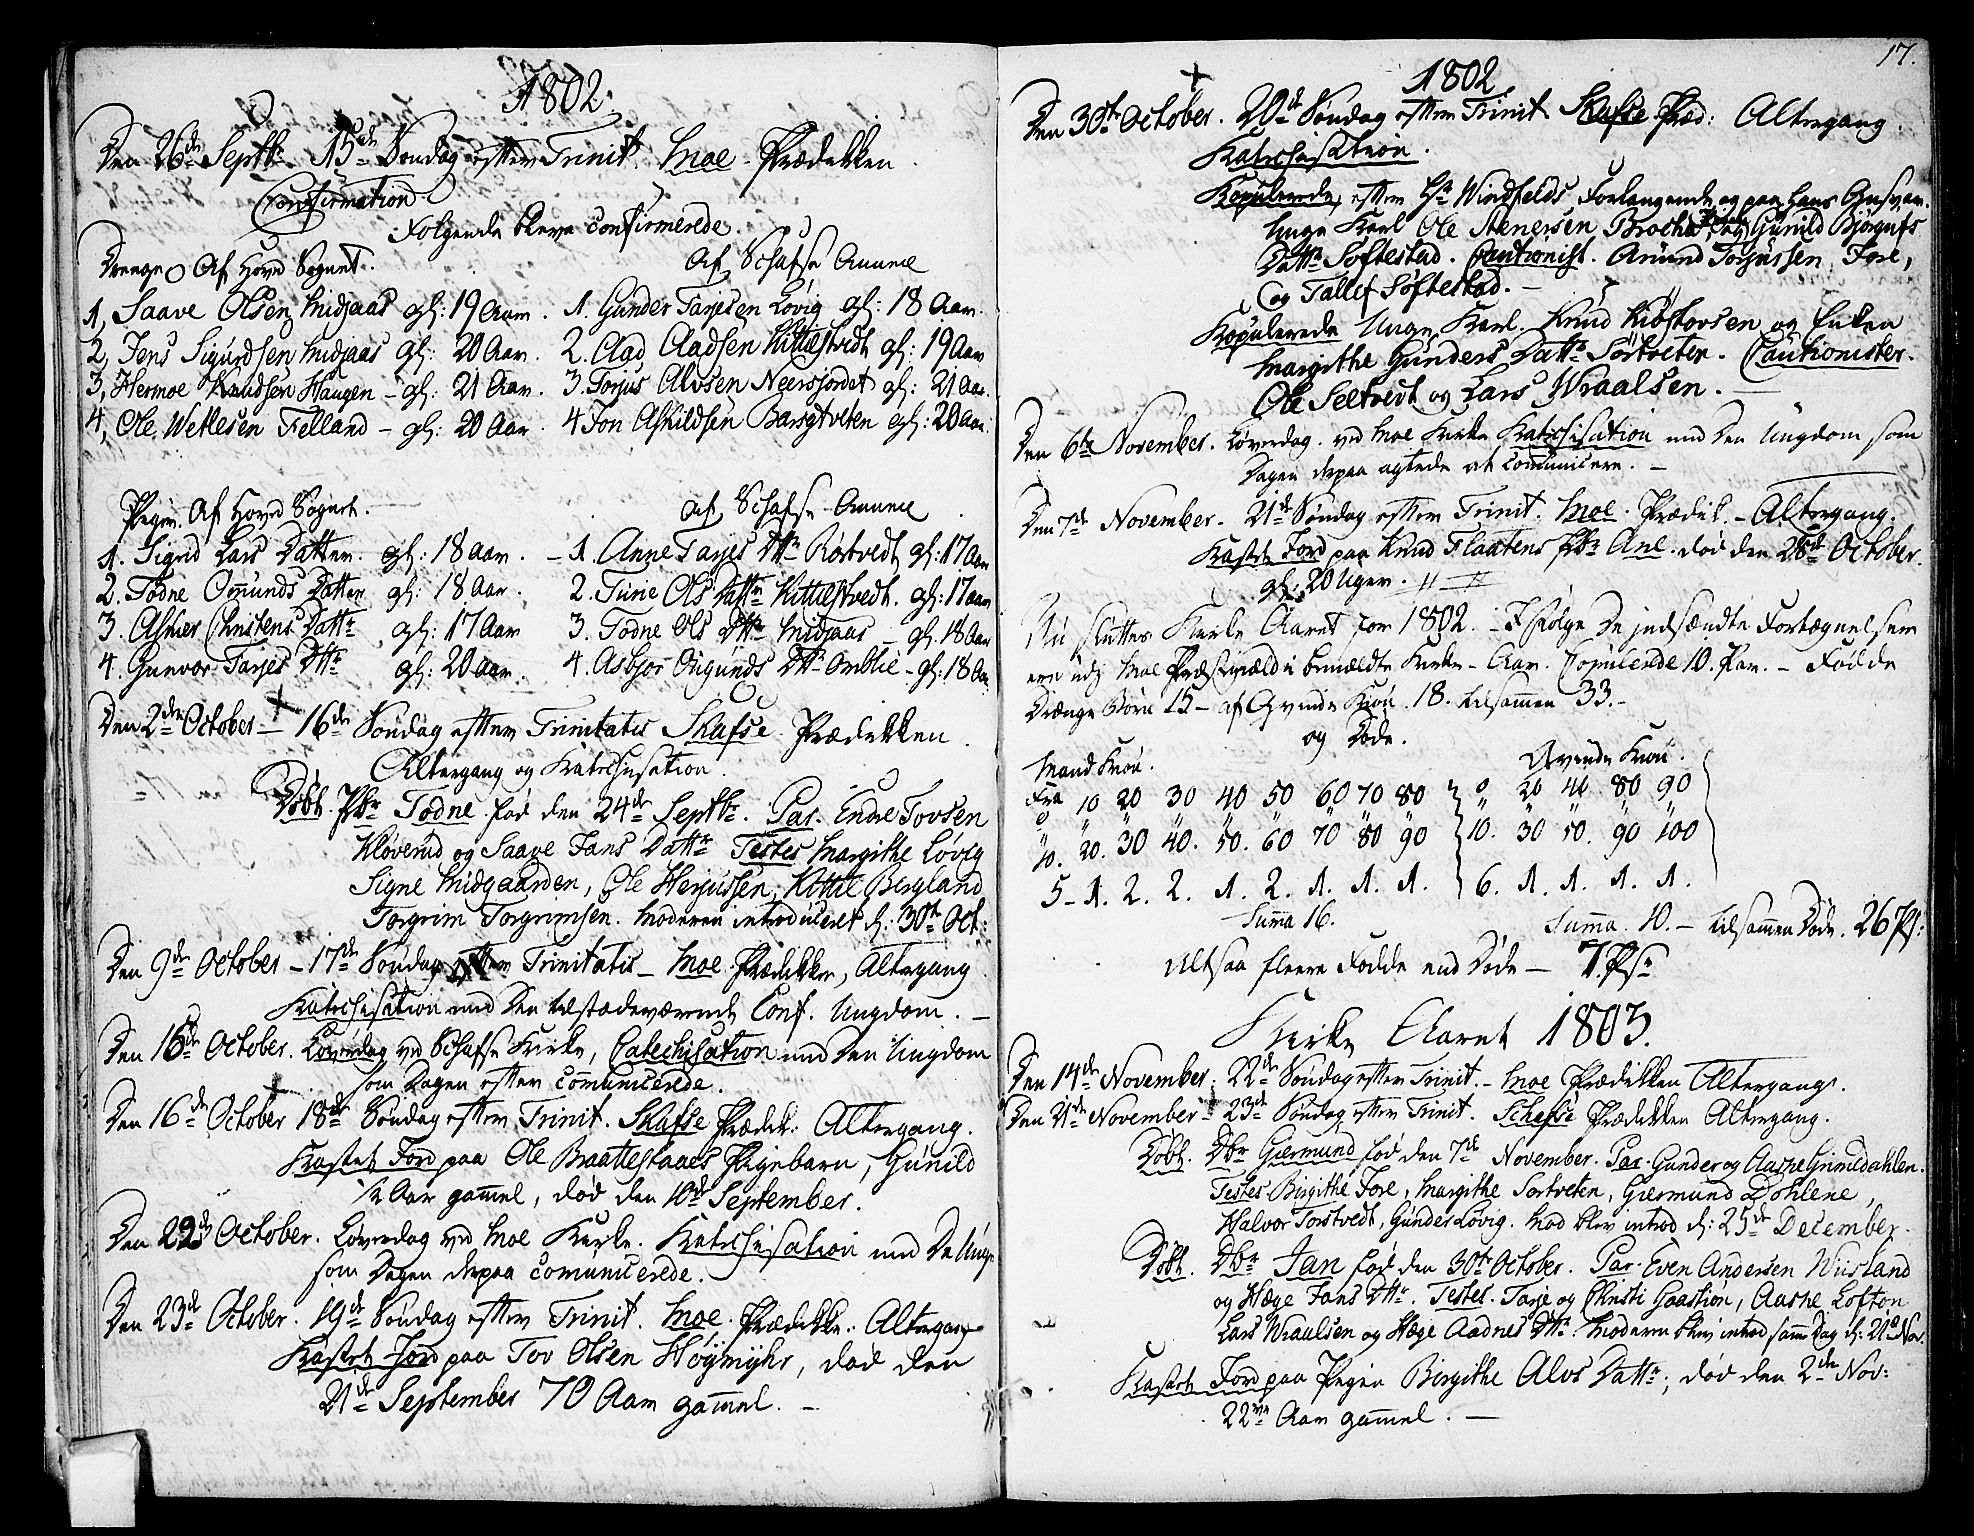 1802.
Den 26de Septbr 15de Søndag efter Trinit. Moe Prædikken.
Confirmation.
Følgende bleve confirmerede.
Drenge Af Hovd Sognet. Af Schafse Annex
1, Saave Olsen Midjaas gl: 19 Aar. 1. Gunder Tarjesen Løvig gl: 18 Aar.
2, Jens Sigurdsen Midjaas gl: 20 Aar. 2. Aad Aadsen Kittelstvedt gl: 19 Aar
3, Hermoe Knudsen Haugen - gl: 21 Aar. 3. Torjus Alvsen Neersjordet gl: 21 Aar.
4, Ole Wetlesen Felland - gl: 20 Aar. 4 Jon Askildsen Bargtveten gl: 20 Aar.
Piger. Af Hovd Sognet. af Schafse Annex
1. Sigrid Lars Datter. gl: 18 Aar. - 1. Anne Tarjes Dttr Røstvedt gl: 17 Aar
2. Todne Omunds Datter gl: 18 Aar. 2. Turie Ols Dattr Kittelstvedt. gl: 17 Aar
3. Asmer Christens Dattr gl: 17 Aar 3. Todne Ols Dttr Midjaas - gl. 18 Aar
4. Gunvor Tarjes Dttr gl: 20 Aar. 4. Asbjør Ougunds Dttr Omblie - gl: 18 Aar
Den 2den October - 16de Søndag efter Trinitatis Skafse Prædikken.
Altergang og Katechisation.
Døbt. Pbr Todne fød den 24de Septbr. Par. Endre Tovsen
Kløverud og Saave Jans Dattr Testes Margithe Løvig
Signe Midgaarden, Ole Herjussen, Kittil Bergland
Torgrim Torgrimsen. Moderen introduceret d: 30te Oct:
Den 9de October - 17de Søndag efter Trinitatis - Moe Prædikken, Altergang
Katechisation med den tilstædeværende Conf. Ungdom. -
Den 16de October. Løverdag ved Schafse Kirke, Catechisation med den Ungdom
som Dagen efter comunicerede.
Den 16de October 18de Søndag efter Trinit. Skafse Prædik: Altergang.
Kastet Jord paa Ole Braattestaaes Pigebarn, Gunild
1/2 Aar gammel, død den 10de September.
Den 22de October. Løverdag ved Moe Kirke. Katechisation med De Unge
som Dagen derpaa comunicerede.
Den 23de October. 19de Søndag efter Trinit. Moe Prædikke. Altergang
Kastet Jord paa Tov Olsen Høymyhr, død den
21de September 70 Aar gammel. -
17.
1802.
Den 30te October. 20de Søndag efter Trinit Skafse Præd: Altergang.
Katechisation.
Kopulerede, efter Hr Windfelds Forlangende og paa hans Ansvar.
Unge Karl Ole Stenersen Brocha og Pigen Gunild Bjørgufs
Dattr Søftestad. Cautionist. Amund Torjussen Fore,
og Tallef Søftestad. -
Kopulerede Unge Karl. Knud Kiøstovsen og Enken
Margithe Gunders Dattr Sørtveten. Cautionister.
Ole Seltvedt og Lars Wraalsen. -
Den 6te November. Løverdag. ved Moe Kirke Katechisation med Den Ungdom som
Dagen derpaa agtede at communicere. -
Den 7de November. 21de Søndag efter Trinit. Moe. Prædik. - Altergang.
Kastet Jord paa Knud Flaatens Pbr Ane. død den 26de October.
gl: 20 Uger.
Nu sluttes Kirke Aaret for 1802. - Ifølge De indsændte Fortegnelser
ere udj Moe Præstegield i bemældte Kirke-Aar. Copulerede 10. Par. - Fødde
Drænge Børn 15 - af Qvinde Kiøn. 18. tilsammen 33. -
og Døde.
Mand Kiøn. Qvinde Kiøn.
Fra 0 10 20 30 40 50 60 70 80 0 20 40 80 90
" " " " " " " " " " " " " "
10. 20. 30 40. 50. 60 70 80 90 10. 30 50. 90 100
5 - 1. 2. 2. 1. 2. 1. 1. 1. 6. 1. 1. 1. 1.
Summa 16. Summa. 10. - tilsammen Døde. 26 Ps:
Altsaa fleere Fødde end Døde - 7. Psr
Kirke Aaret 1803.
Den 14de November. 22de Søndag efter Trinit. - Moe Prædikken Altergang.
Den 21de November - 23de Søndag efter Trinit. Schafse Prædikken Altergang.
Døbt. Dbr Giermund fød den 7de November. Par. Gunder og Aashe Grimedahlen.
Testes Birgithe Fore, Margithe Sortveten, Giermund Dohlene,
Halvor Torstvedt, Gunder Løvig. Mod blev introd d: 25de December.
Døbt. Dbr Jan fød den 30te October. Par. Even Andersen Wiisland
og Hæge Jans Dttr. Testes. Tarje og Christi Haastion, Aashe Lofton
Lars Wraalsen og Hæge Aadnes Dttr. Moderen blev introd samme Dag d: 21de Nov.
Kastet Jord paa Pigen Birgithe Alvs Dattr, død den 2den Nov:
22ve Aar gammel. -